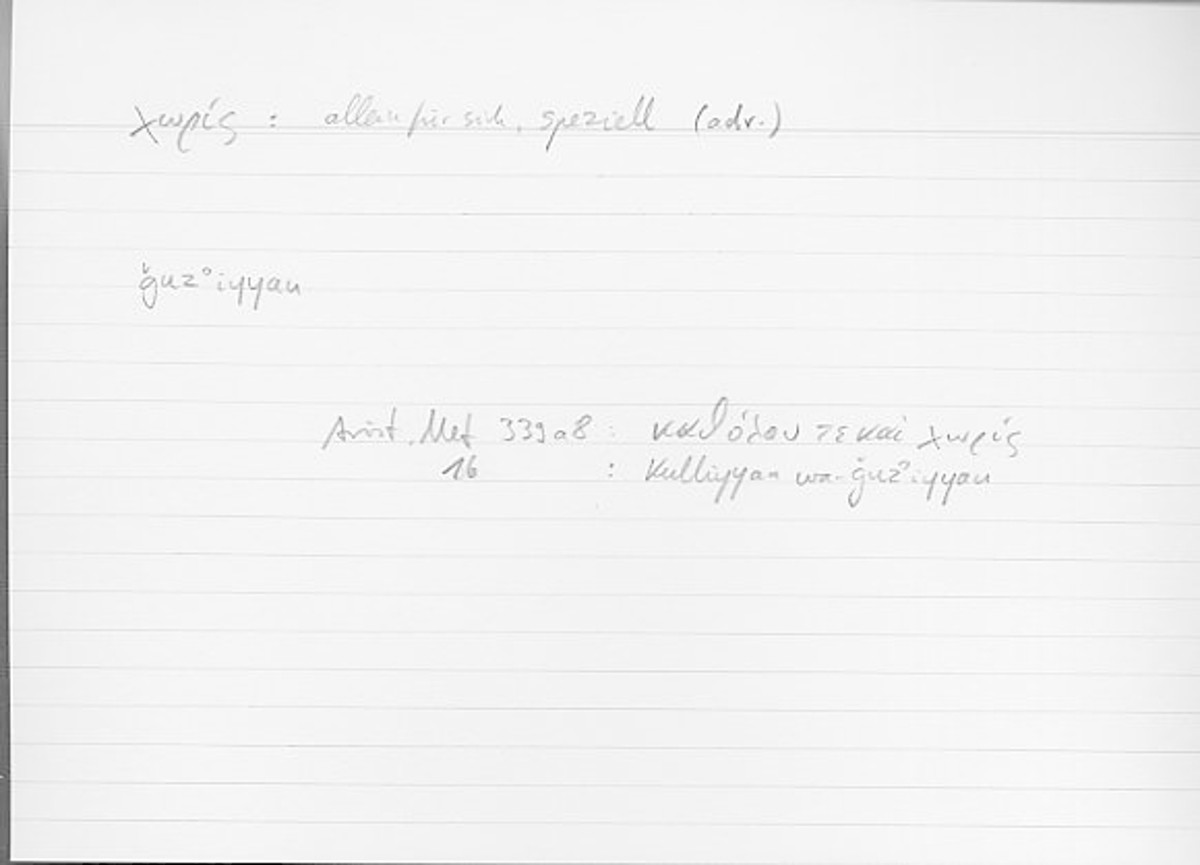 χωρίς : allein für sich, speziell (adv.)
ǧuzʾiyyan
Arist. Met 339a8 : καθόλου τε καὶ χωρίς
16 : Kulliyyan wa-ǧuzʾiyyan